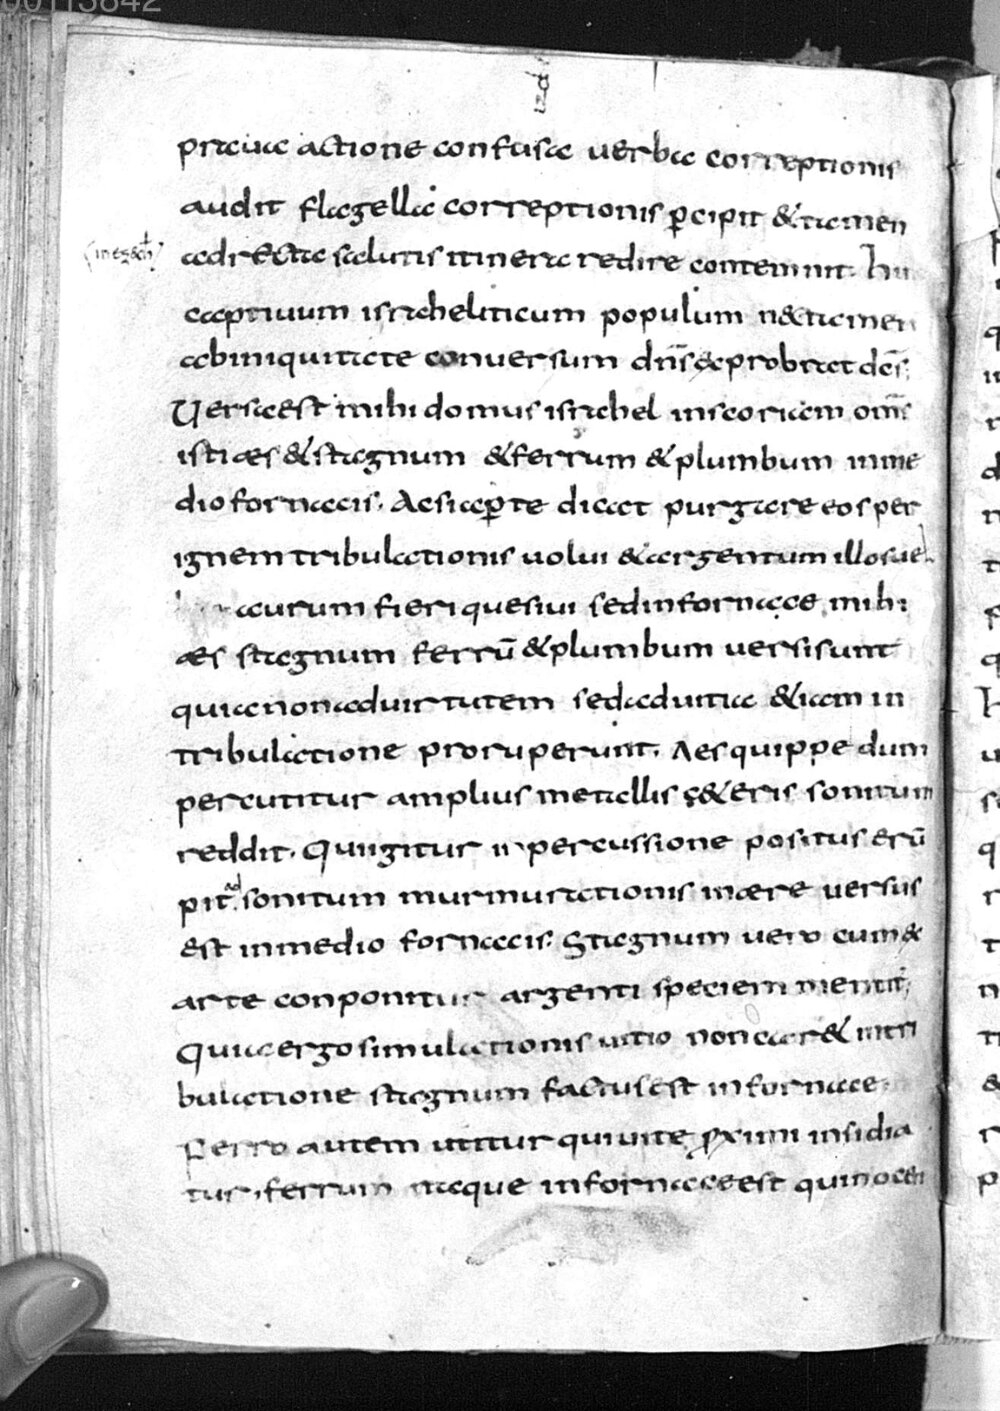 praua actione confusa uerba correptionis
audit flagella correptionis p̱cipit & tamen
in ezech
ad recta salutis itinera redire contemnit. hu
captiuum israheliticum populum n& tamen
ab iniquitate conuersum dn̄s exprobrat dc̄s;
Uersa est mihi domus israhel in scoriam om̄s
isti aes & stagnum & ferrum & plumbum in me
dio fornacis. Ac si ap̱te dicat purgare eos per
ignem tribulationis uolui & argentum illos uel
aurum fieri quesiui sed in fornace mihi
aes stagnum ferrū & plumbum uersi sunt
quia non ad uirtutem sed ad uitia &iam in
tribulatione proruperunt. Aes quippe dum
percutitur amplius metallis c&eris sonitum
reddit. Qui igitur in percussione positus erū
pit ad sonitum murmurationis in aere uersus
est in medio fornacis. Stagnum uero cum ex
arte conponitur argenti speciem mentit;
Qui ergo simulationis uitio non car& in tri
bulatione stagnum factus est in fornace.
Ferro autem utitur qui uite proximi insidia
tur. ferrum itaque in fornace est qui nocen